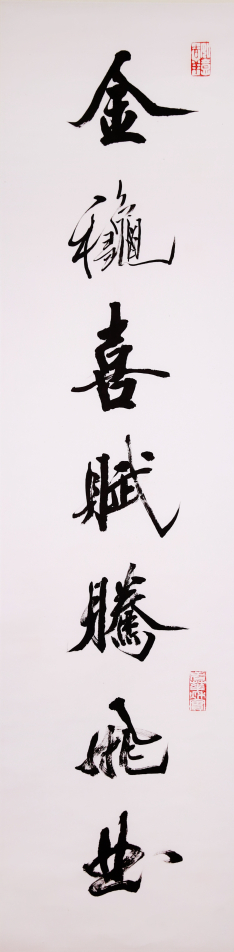 金穐喜賦騰飛曲